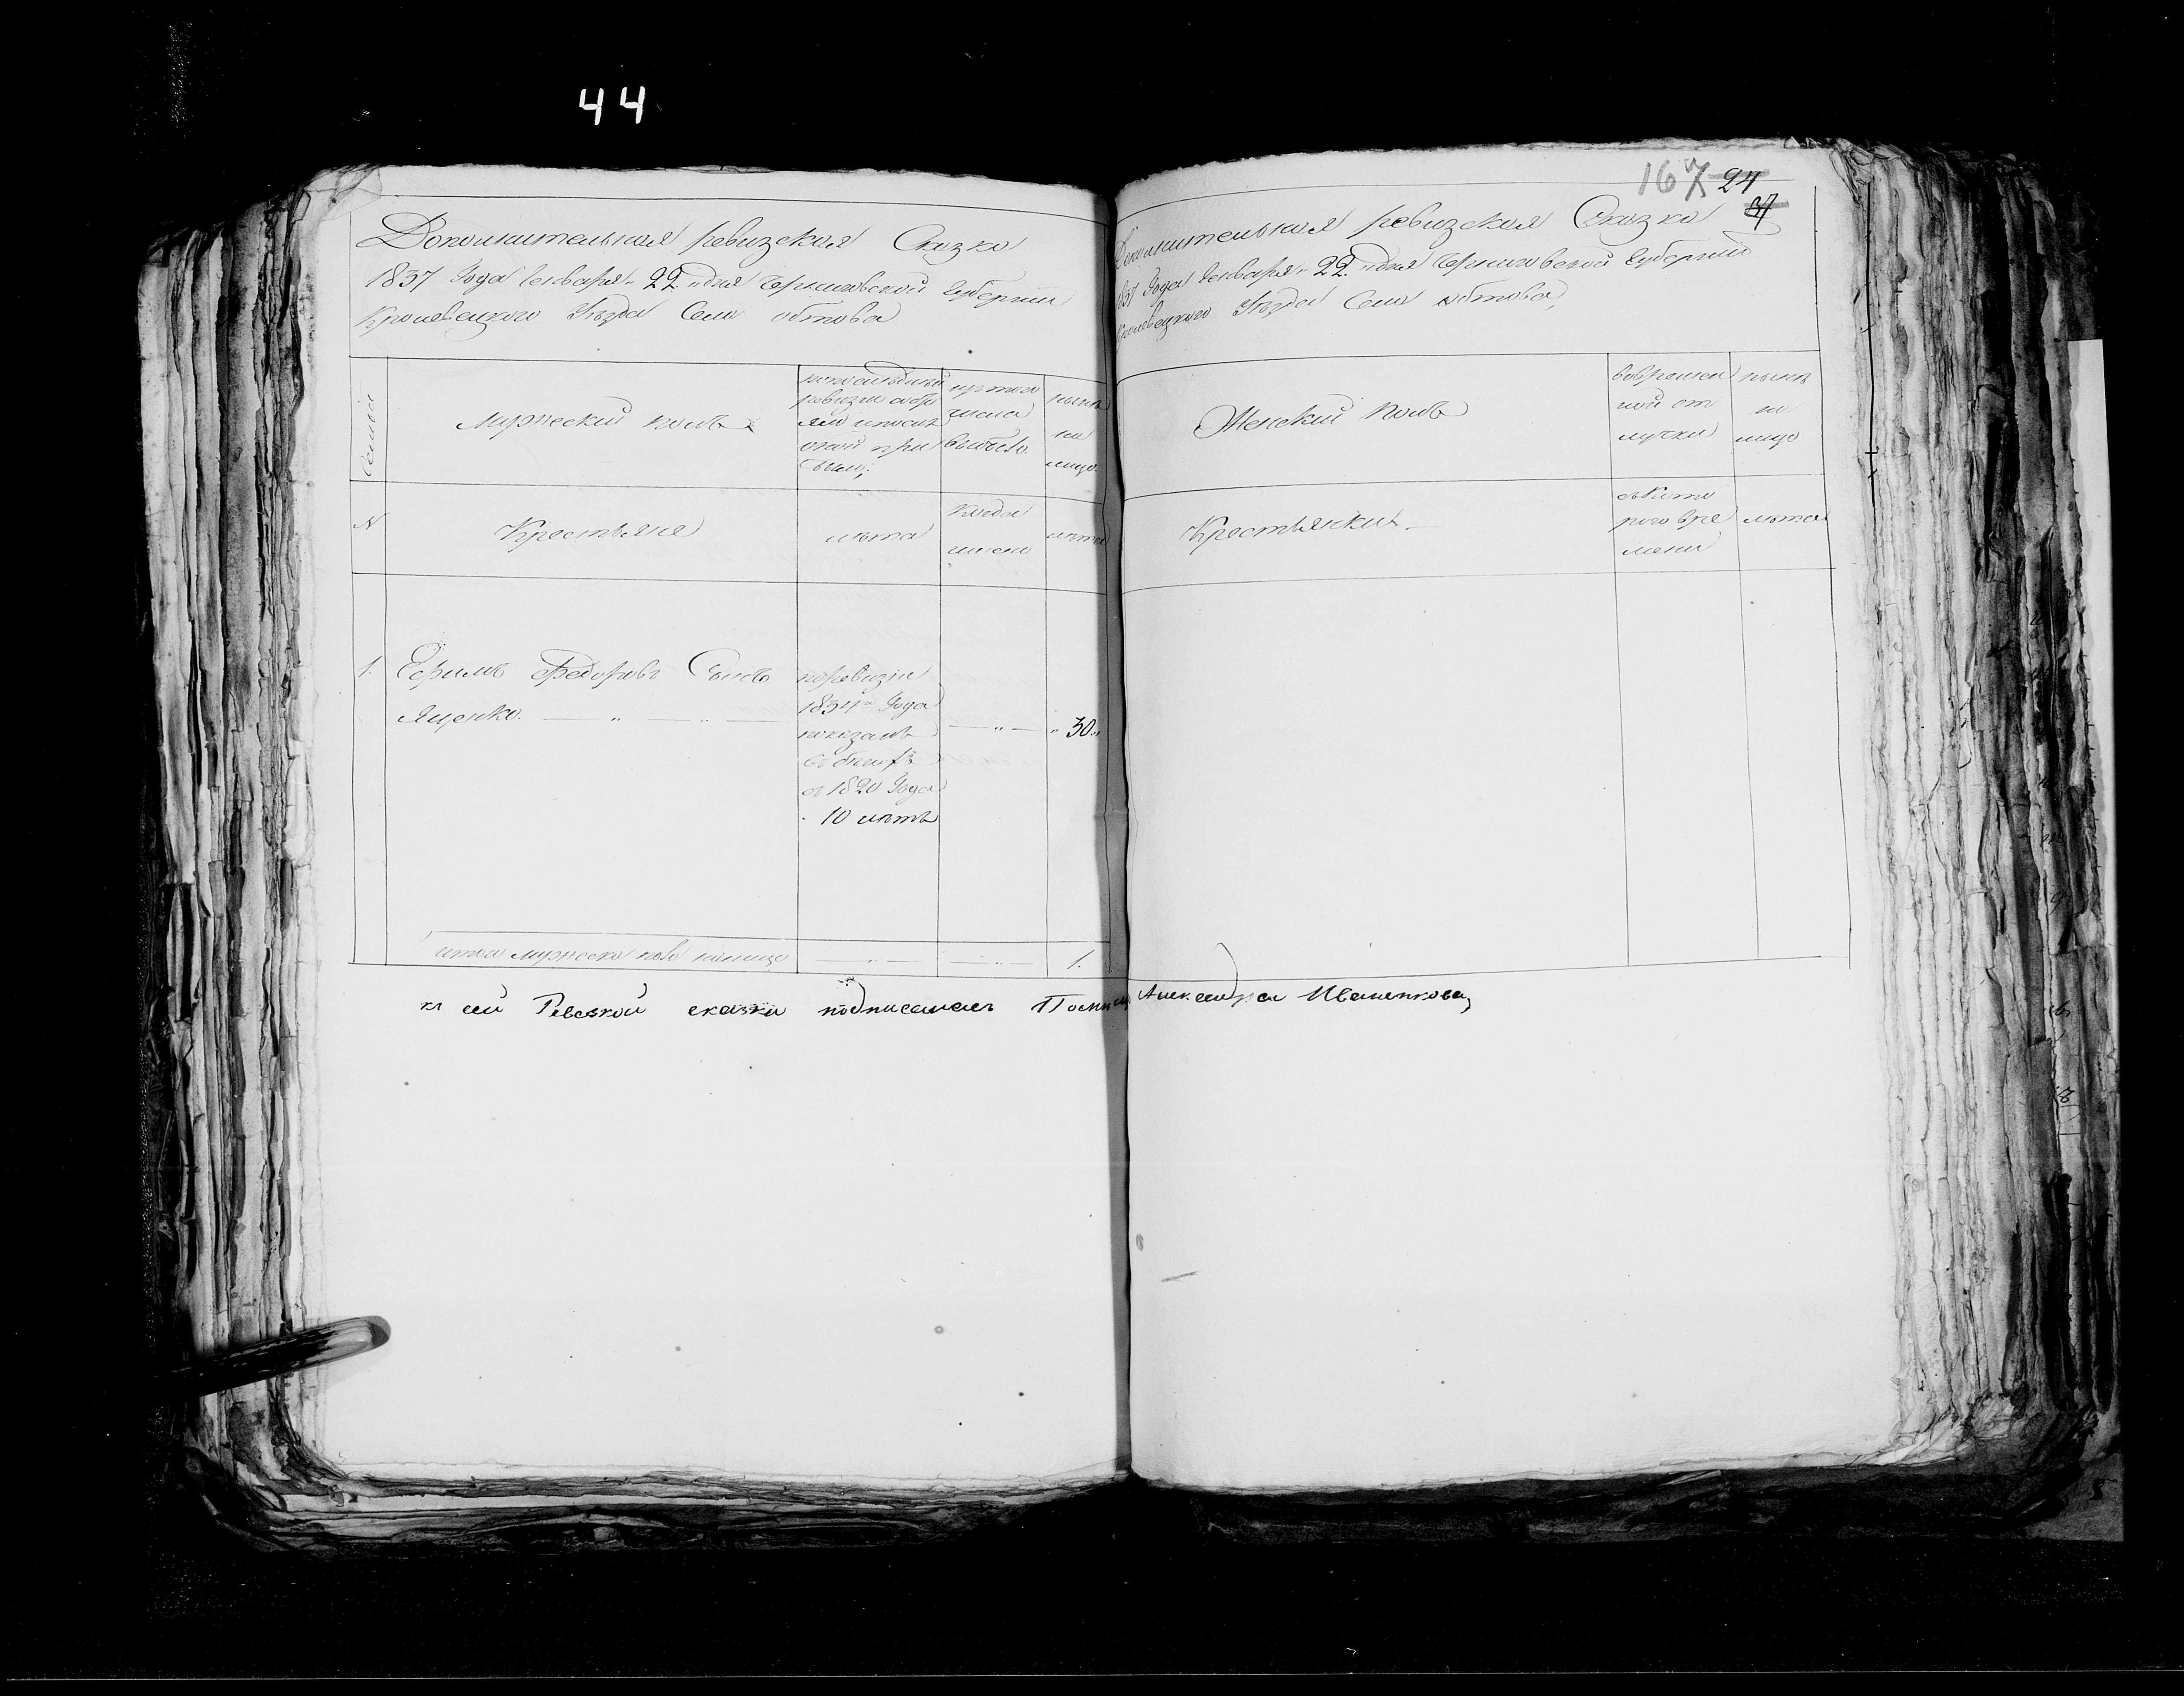 44
Дополнительная ревизская Сказка
1837 Года Генваря „22„ дня Черниговской Губернии
Кролевецкого Уѣзда Села обтова
Семьи
Мужеский полъ
по последней
ревизии состо
яло и после
оной при
было;
изъ того
числа
выбыло.
нынѣ
на
лицо.
N
Крестьяне
лѣта
когда
именно
лѣта
1. Ефимъ Федоровъ Сынъ
Яценко. — „ — „ —
поревизіи
1834го Года
показанъ
въ бегахъ
съ 1820 Года
10 лѣтъ
— „ —
„ 30. „
итого мужеска пола налицо — „ — — „ — 1.
167 24
37
Дополнительная ревизская Сказка
1837 Года Генваря „22„ дня Черниговской Губернии
Кролевецкого Уѣзда Села обтова,
Женский полъ
вовремен
ной от
лучки
нынѣ
на
лицо
Крестьянки.
съкото
рого вре
мени
лѣта
к сей Ревезкой сказки подписалась Помещ Александра Иваненкова,